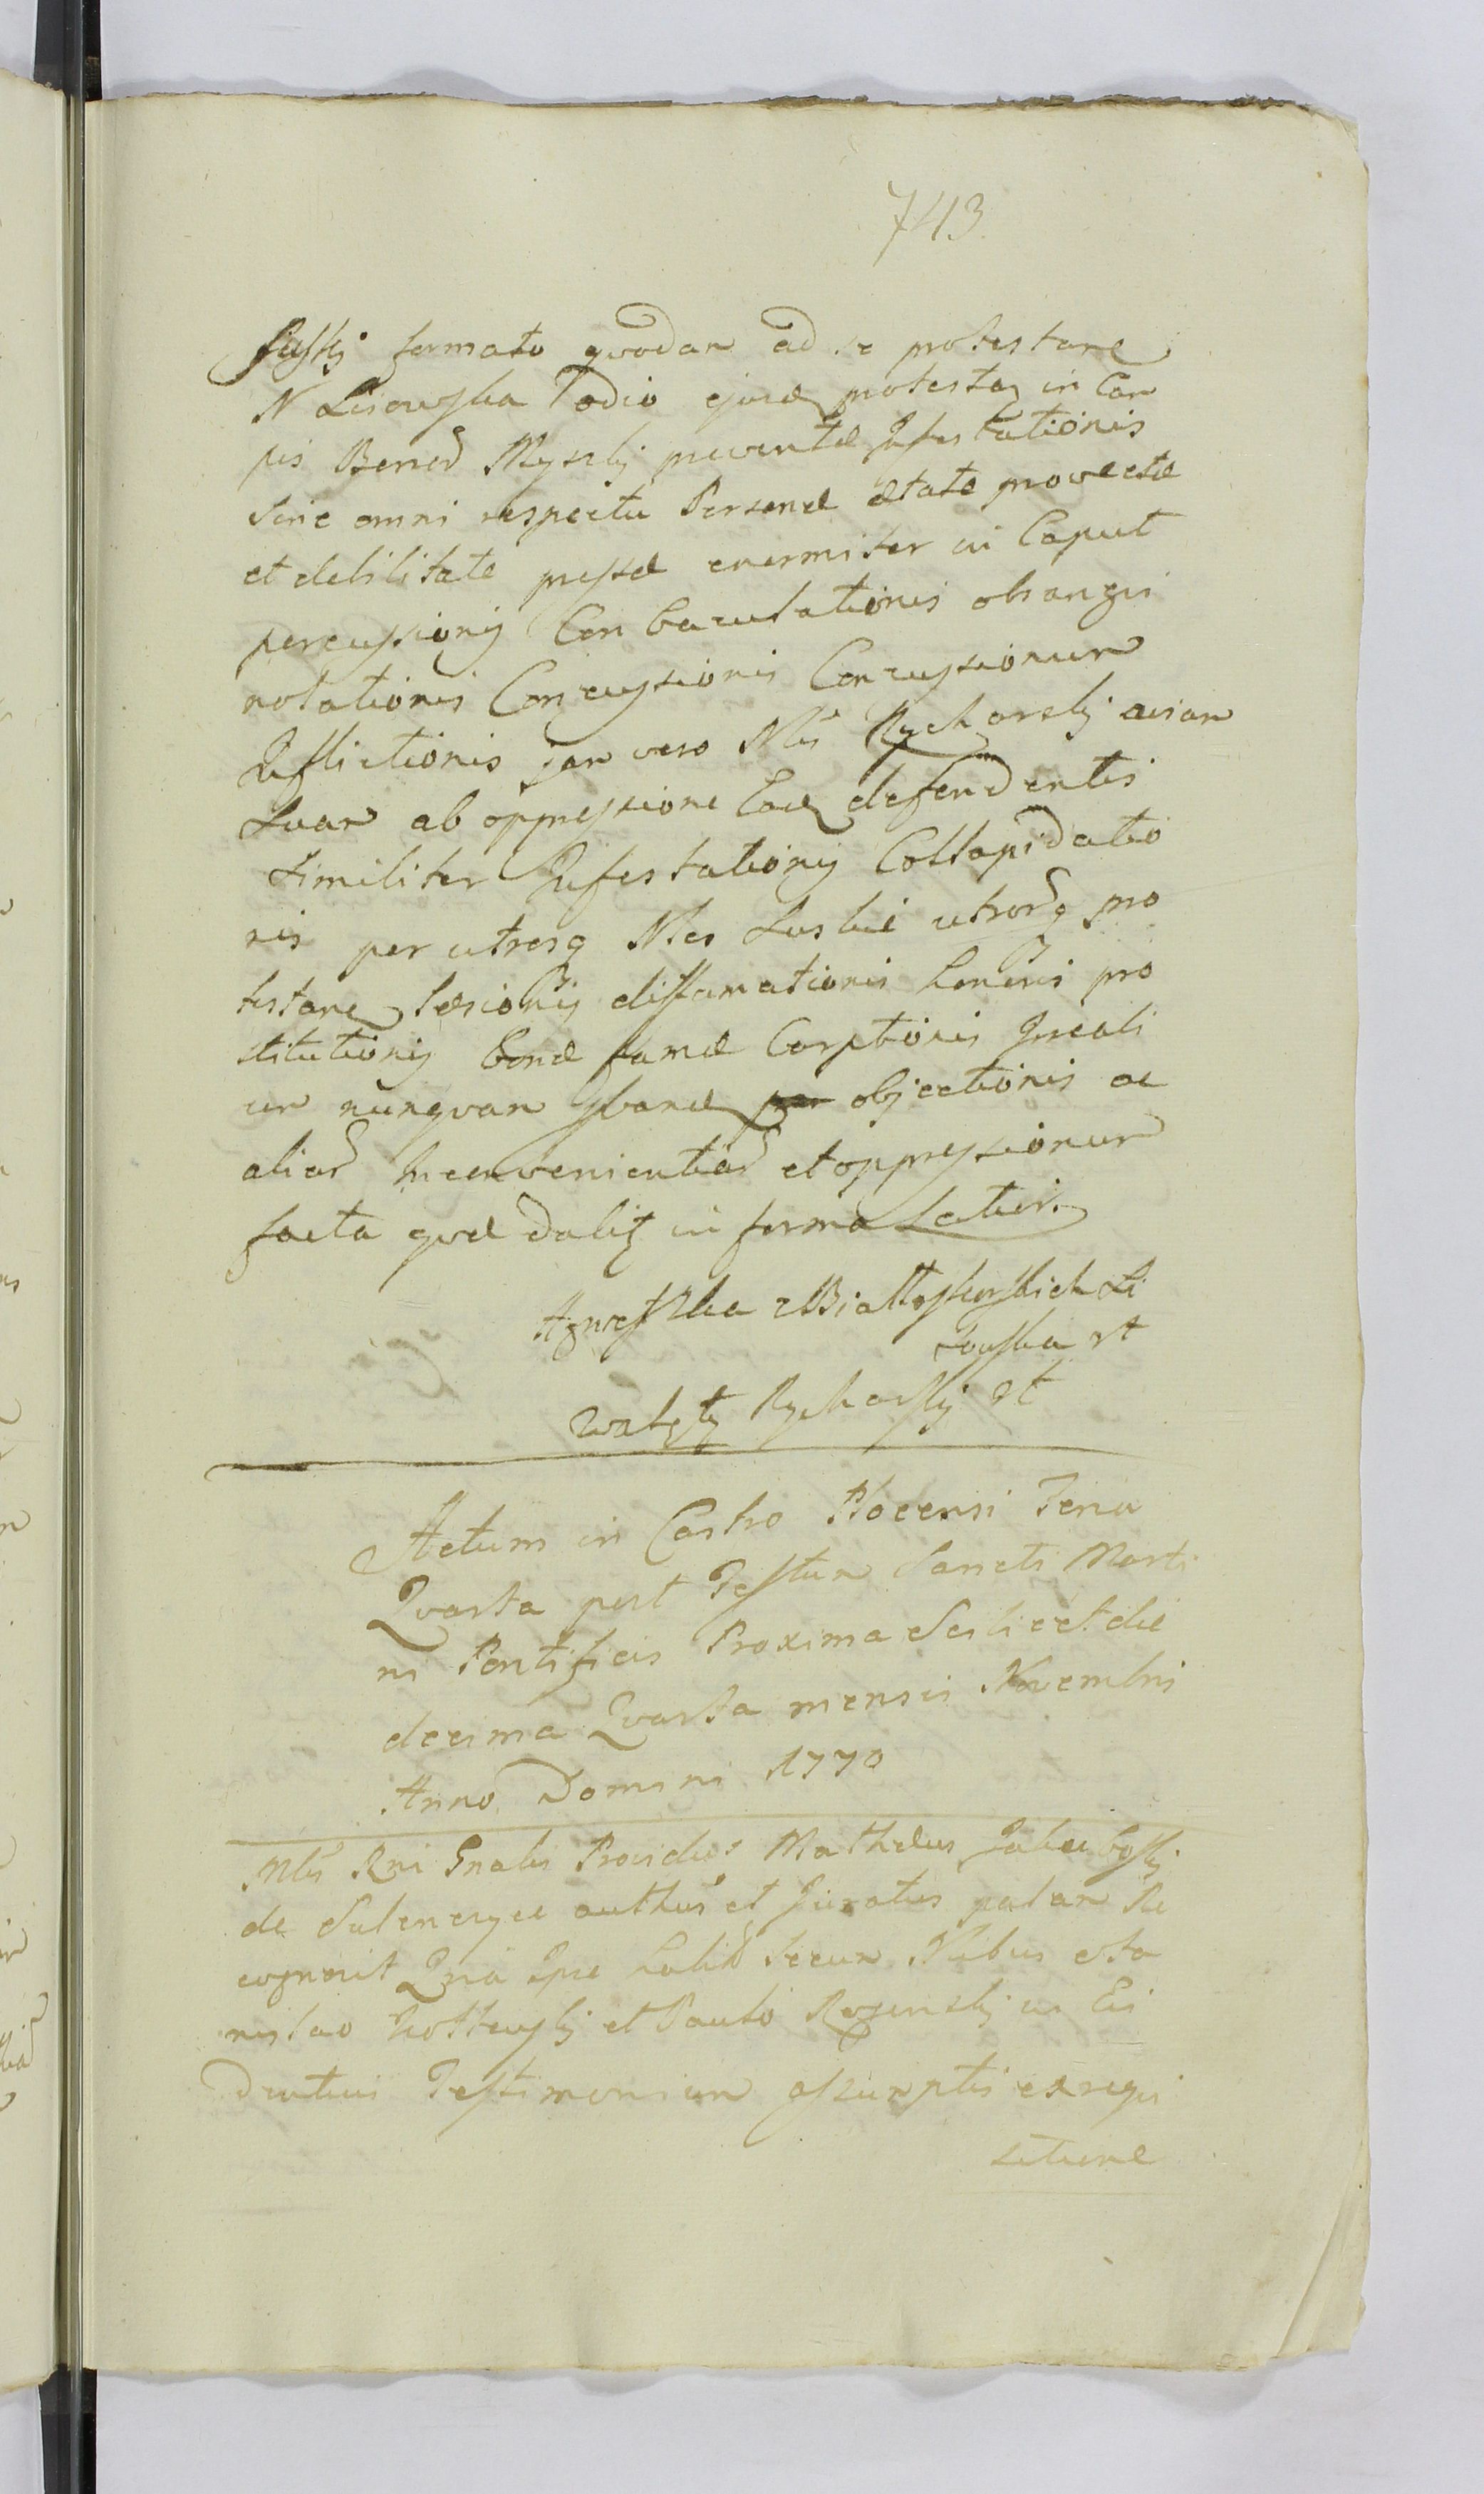 743
formato quodam ad se protestane
N Lisowska odio ejusd protestaz in Cam
pis Bonor Myszki preventae Infestationis
Sine omni respectu Personae aetate provectae
et debilitate pressae enormiter in Caput
percussionis Con baculationis obsangvi
nolationis Concussionis Concussionum
Inflictionis jam vero Mci Rycharski aviam
Suam ab oppressione Ead defendentis
similiter Infestationis Collapidatio
nis per utrosq Mcos Suskie utrorq pro
testane laesionis diffamationis honoris pro
stitutionis bonae famae Carptionis
um nunquam objectionis ac
aliar inconvenientiar et oppressionum
facta quae dabit in forma Latiori
Agnieszka z Białoskurskich Li
sowska rt
Walęty Rycharski rt
Actum in Castro Plocensi Feria
Quarta post Festum Sancti Marti
ni Pontificis Proxima Scilicet die
decima Quarta mensis Novembris
Anno Domini 1770
Mlis Rni Gnalis Providus Mathaeus
de authus et Juratus palam Re
cognovit Quia Ipse habitis secum Nlibus Sta
nislao et Paulo in Evi
dentius Testimonium assumptis ex requi
sitione